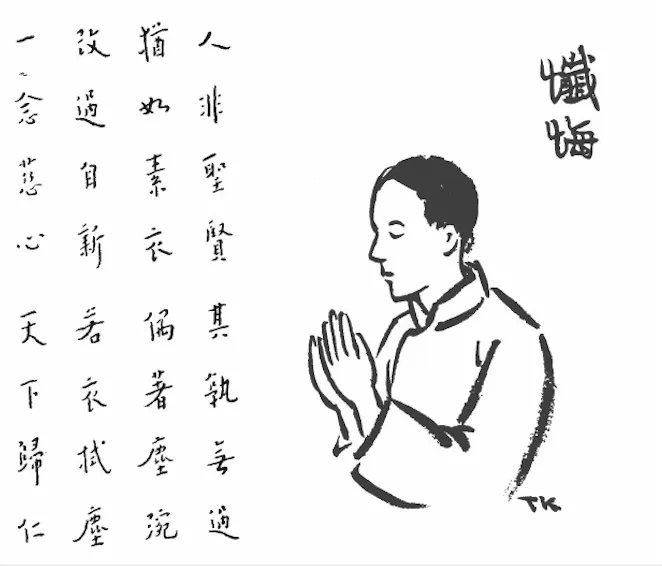 懺悔
人非聖賢其孰無過
猶如素衣偶著塵涴
改過自新若衣拭塵
一念慈心天下歸仁
TK